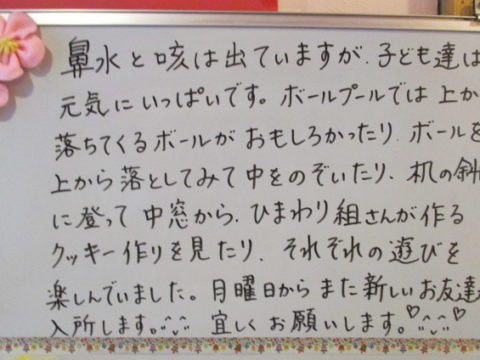 鼻水と咳は出ていますが、子ども達は
元気にいっぱいです。ボールプールでは上か
落ちてくるボールがおもしろかったり、ボールを
上から落としてみて中をのぞいたり、机の斜
に登って中窓から、ひまわり組さんが作る
クッキー作りを見たり、それぞれの遊びを
楽しんでいました。月曜日からまた新しいお友達
入所します。宜しくお願いします。